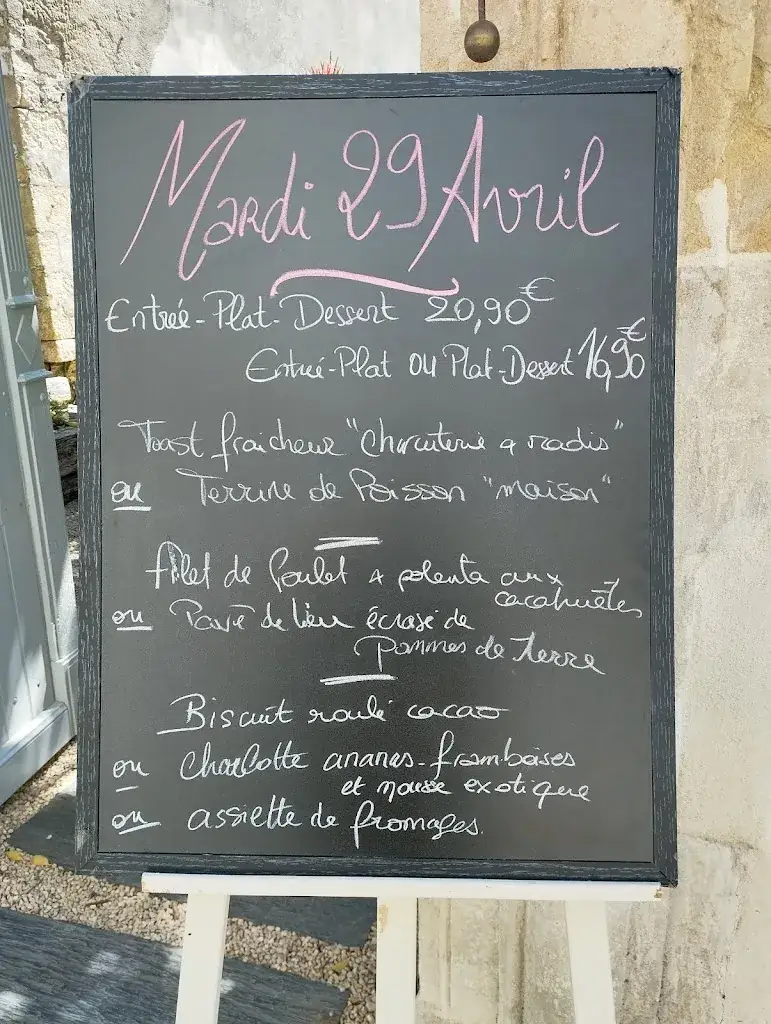 Mardi 29 Avril
Entrée-Plat-Dessert 20,90€
Entrée-Plat ou Plat-Dessert 16,90€
Toast fraicheur "charcuterie & radis"
ou Terrine de Poisson "maison"
filet de Poulet & polenta aux
cacahuètes
ou Pavé de lieu écrasé de
pommes de terre
Biscuit roulé cacao
ou charlotte ananas-framboises
et mousse exotique
ou assiette de fromages.